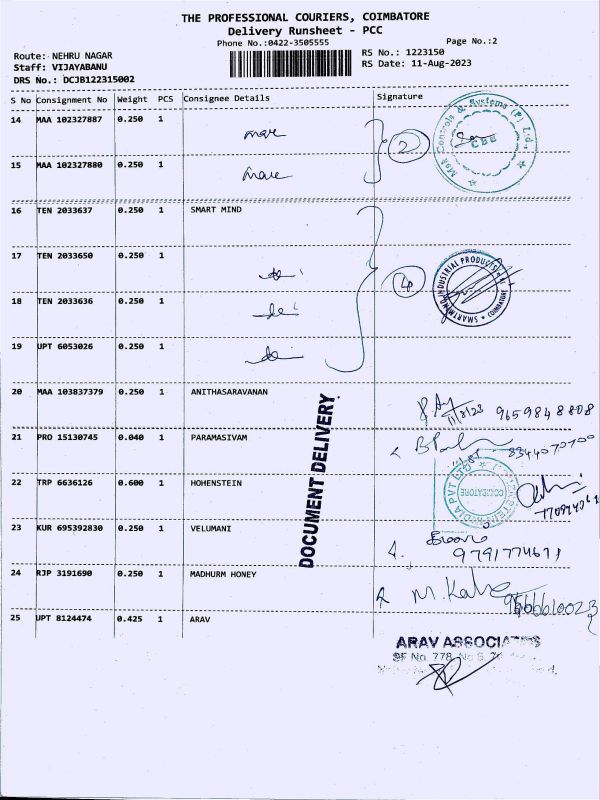 THE PROFESSIONAL COURIERS, COIMBATORE
Delivery Runsheet - PCC
Phone No.:0422-3505555
Page No.:2
Route: NEHRU NAGAR
RS No.: 1223150
Staff: VIJAYABANU
RS Date: 11-Aug-2023
DRS No.: DCJB122315002
S No Consignment No Weight PCS Consignee Details Signature
14 MAA 102327887 0.250 1
2
Controls & Systems (P) Ltd.
CBE
15 MAA 102327880 0.250 1
16 TEN 2033637 0.250 1 SMART MIND
17 TEN 2033650 0.250 1
4
INDUSTRIAL PRODUCTS
COIMBATORE
18 TEN 2033636 0.250 1
19 UPT 6053026 0.250 1
20 MAA 103837379 0.250 1 ANITHASARAVANAN
11/8/23 9659848808
21 PRO 15130745 0.040 1 PARAMASIVAM
8344070700
DOCUMENT DELIVERY
22 TRP 6636126 0.600 1 HOHENSTEIN
COIMBATORE
23 KUR 695392830 0.250 1 VELUMANI
9791774671
24 RJP 3191690 0.250 1 MADHURM HONEY
25 UPT 8124474 0.425 1 ARAV
ARAV ASSOCIATES
SF No. 778